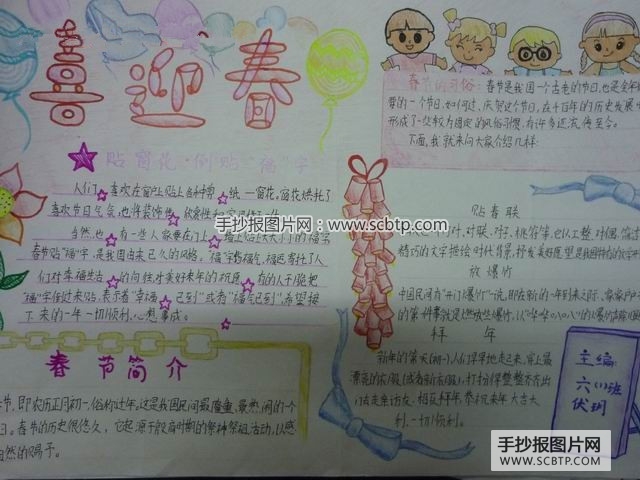 喜迎春
贴窗花·倒贴"福"字
人们喜欢在窗户上贴上各种剪纸—窗花。窗花烘托了
喜欢节日气氛,也将装饰性、欣赏性和
当然,也有一些人家要在门上、墙上贴上大大小小的福字
春节贴"福"字,是我国由来已久的风俗。"福"字指福气,福运,寄托了人
们对幸福生活的向往,对美好未来的祝愿。有的人干脆把
"福"字倒过来贴,表示着"幸福已到"或者"福气已到",希望接
下来的一年一切顺利,心想事成。
春节简介
节,即农历正月初一,俗称过年。这是我国民间最隆重、最热闹的一个
日。春节的历史很悠久,它起源于殷商时期的祭神祭祖活动,以感
自然的赐予。
春节的习俗:春节是我国一个古老的节日,也是全年
要的一个节日,如何过、庆贺这个节日,在千百年的历史发展
形成了一些较为固定的风俗习惯,有许多还流传至今。
下面,我就来向大家介绍几样:
贴春联
对、对联、对子、桃符等,它以工整、对偶、简
精巧的文字描绘时代背景,抒发美好愿望,是我国特有的文学
放爆竹
中国民间有"开门爆竹"一说,即在新的一年到来之际,家家户户
的第一件事就是燃放爆竹,以
拜年
新年的第一天(初一),人们早早地起来,穿上最
漂亮的衣服(或者新衣服),打扮得整整齐齐,出
门去走亲访友,相互拜年,恭祝来年大吉大
利,一切顺利。
主编:
六(1)班
伏玥
手抄报图片网:www.scbtp.com
手抄报图片网
WWW.SCBTP.COM